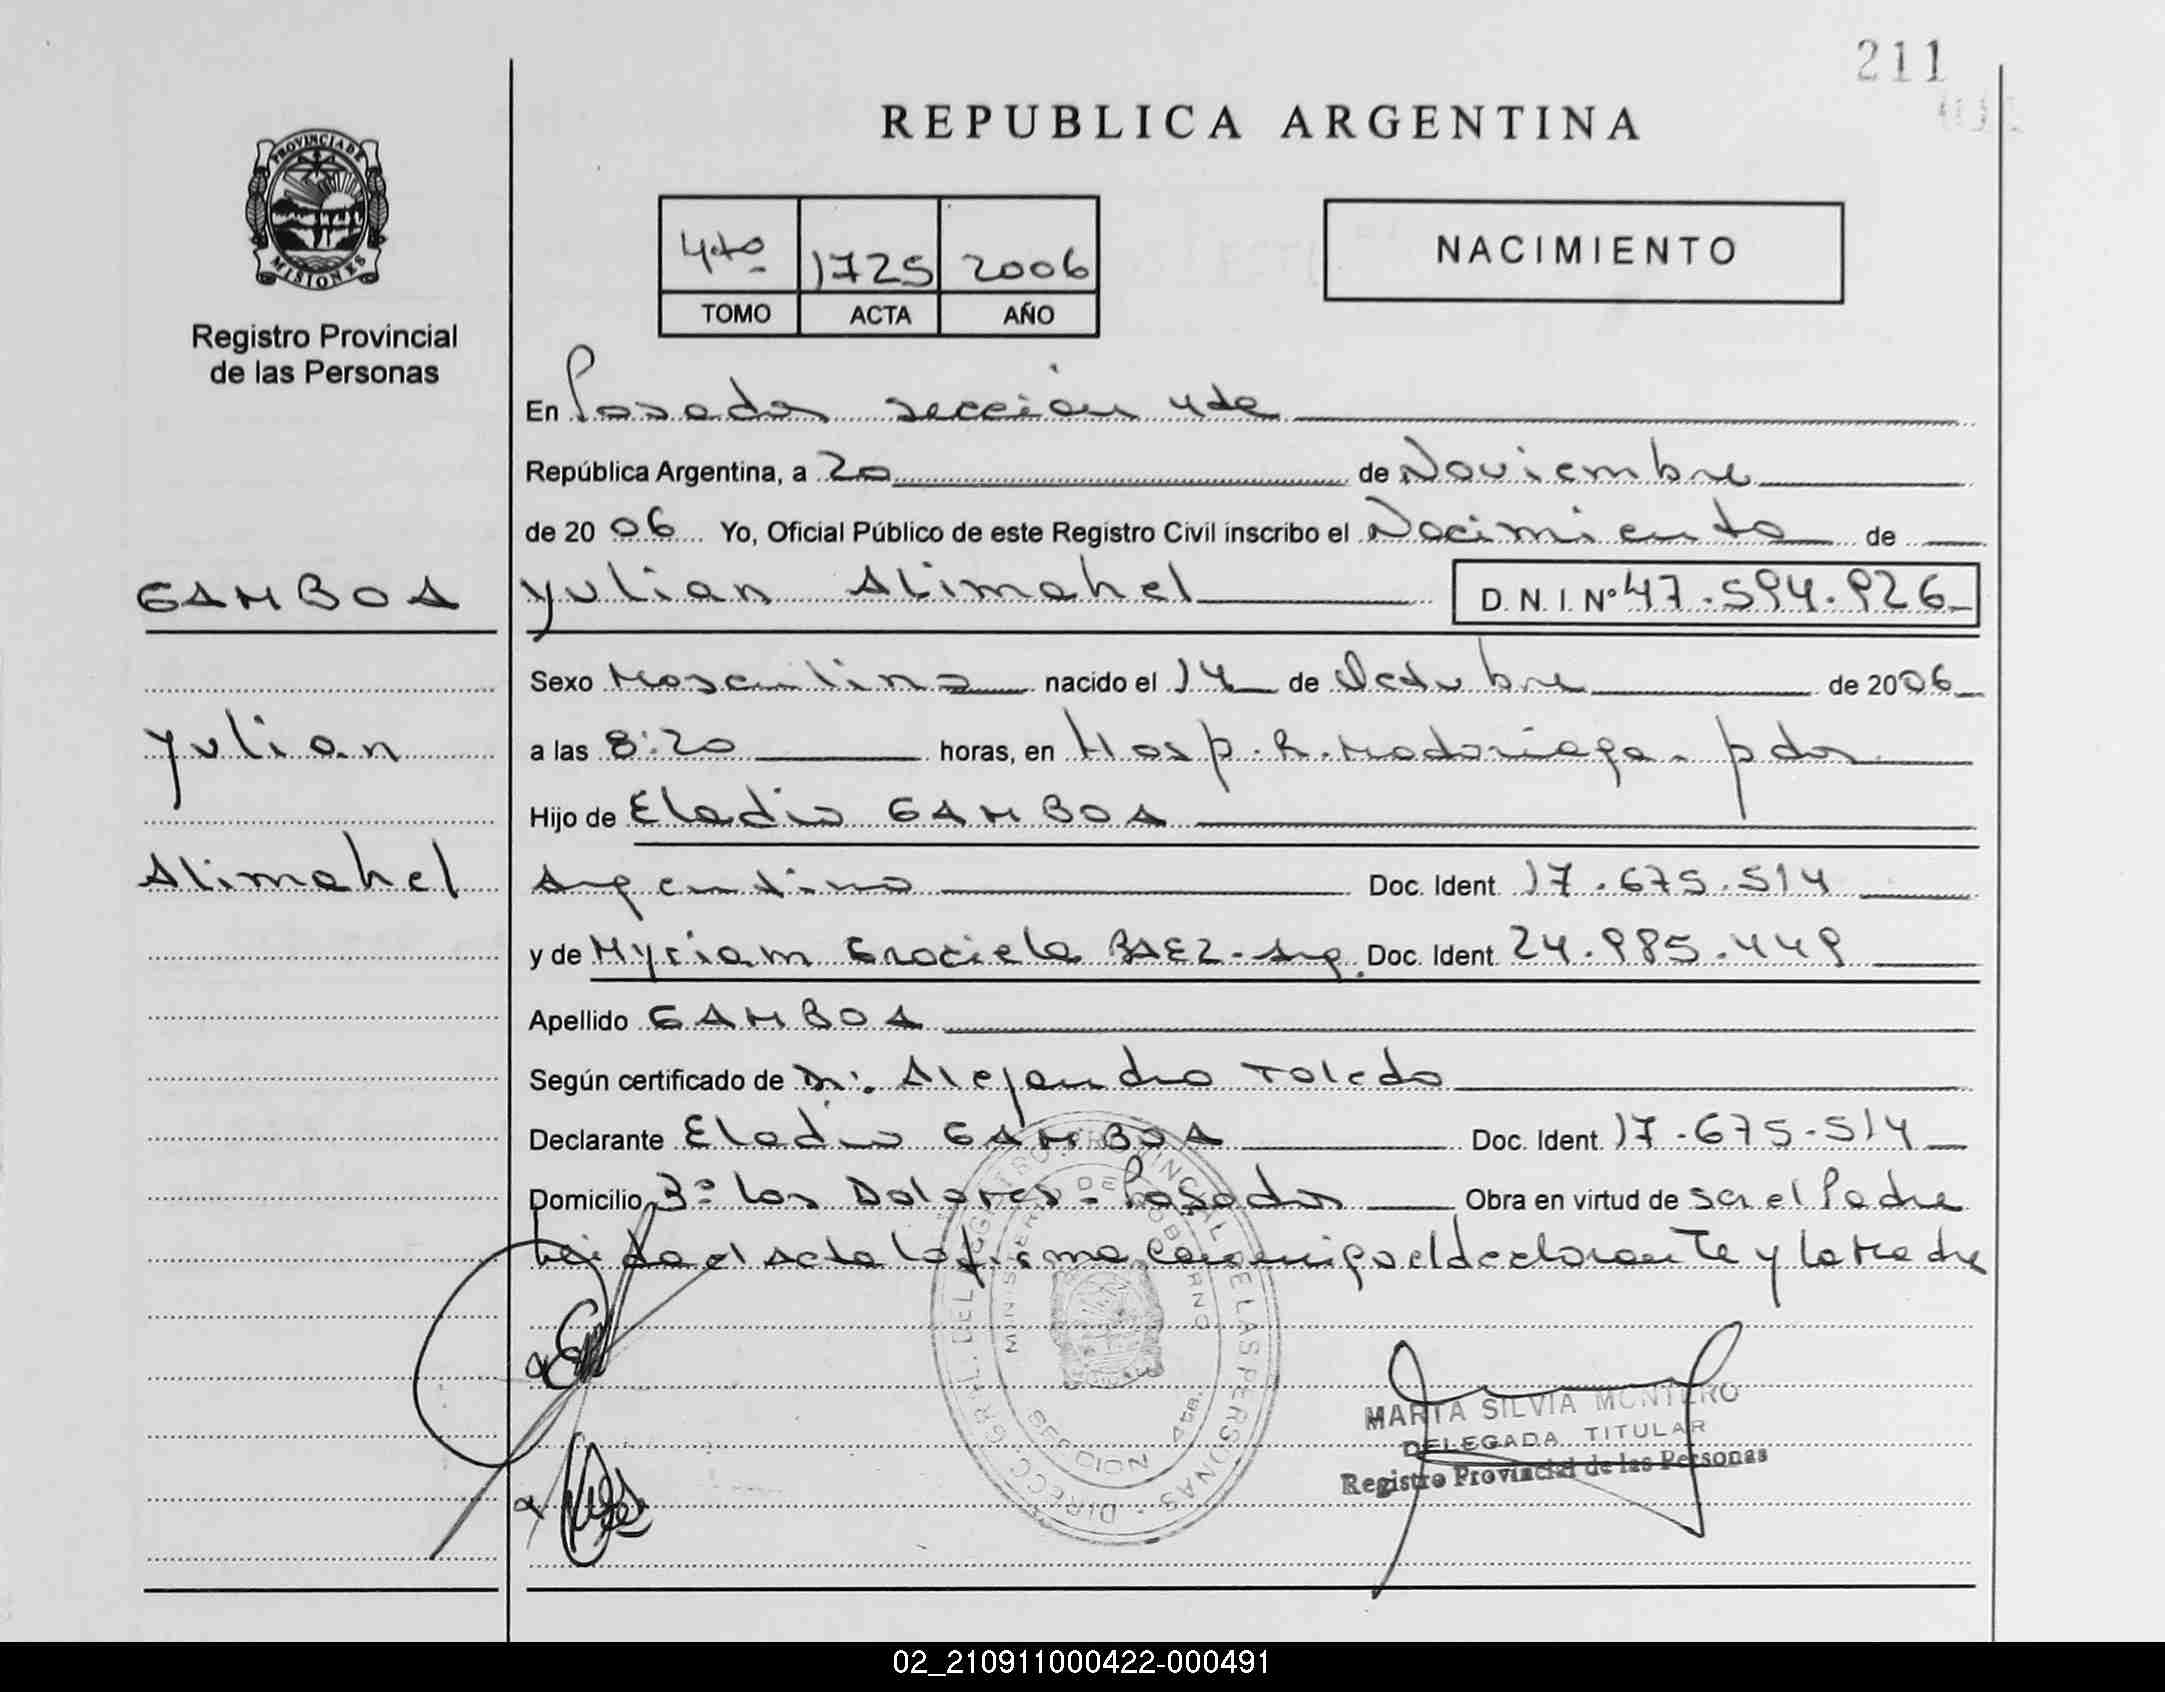 211
PROVINCIA DE
MISIONES
Registro Provincial
de las Personas
REPUBLICA ARGENTINA
4to 1725 2006
TOMO ACTA AÑO
NACIMIENTO
En Posadas sección 4ta
República Argentina, a 20 de Noviembre
de 2006 Yo, Oficial Público de este Registro Civil inscribo el Nacimiento de
GAMBOA
Yulian Alimahel D. N. I. Nº 47.594.926
Sexo Masculino nacido el 14 de Octubre de 2006
Yulian
a las 8:20 horas, en Hosp. R. Madariaga - pdas
Hijo de Eladio GAMBOA
Alimahel
Argentino Doc. Ident. 17.675.514
y de Myriam Graciela BAEZ - Arg. Doc. Ident. 24.985.449
Apellido GAMBOA
Según certificado de Dr. Alejandro Toledo
Declarante Eladio GAMBOA Doc. Ident. 17-675-514
Domicilio Bº Los Dolores - Posadas Obra en virtud de ser el Padre
Leida el Acta la firma conmigo el declarante y la Madre
DIRECC. GRAL. DEL REGISTRO PROVINCIAL DE LAS PERSONAS
MINISTERIO DE GOBIERNO
SECCION 4ta.
MARTA SILVIA MONTERO
DELEGADA TITULAR
Registro Provincial de las Personas
02_210911000422-000491